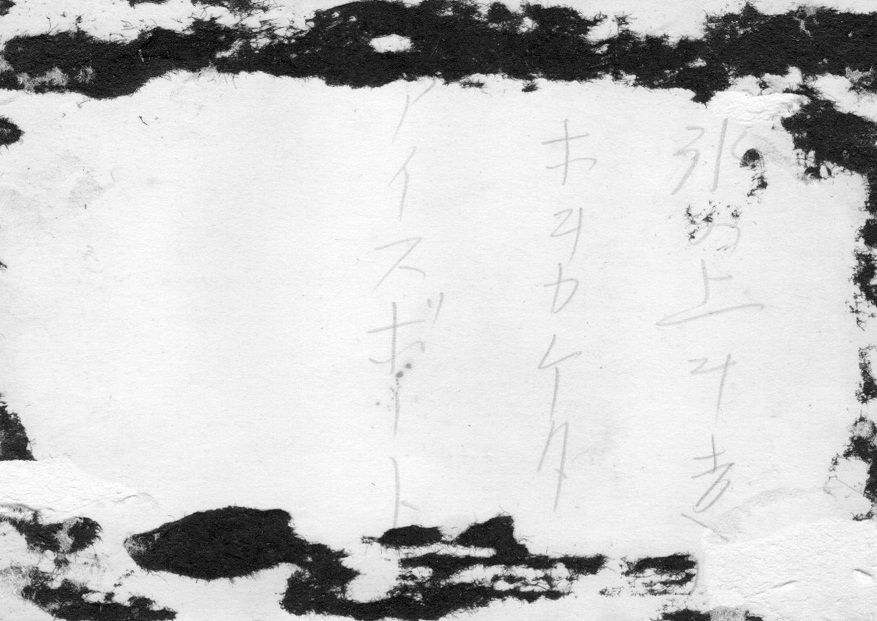 氷の上ヲ走
ホヲカケタ
アイスボート